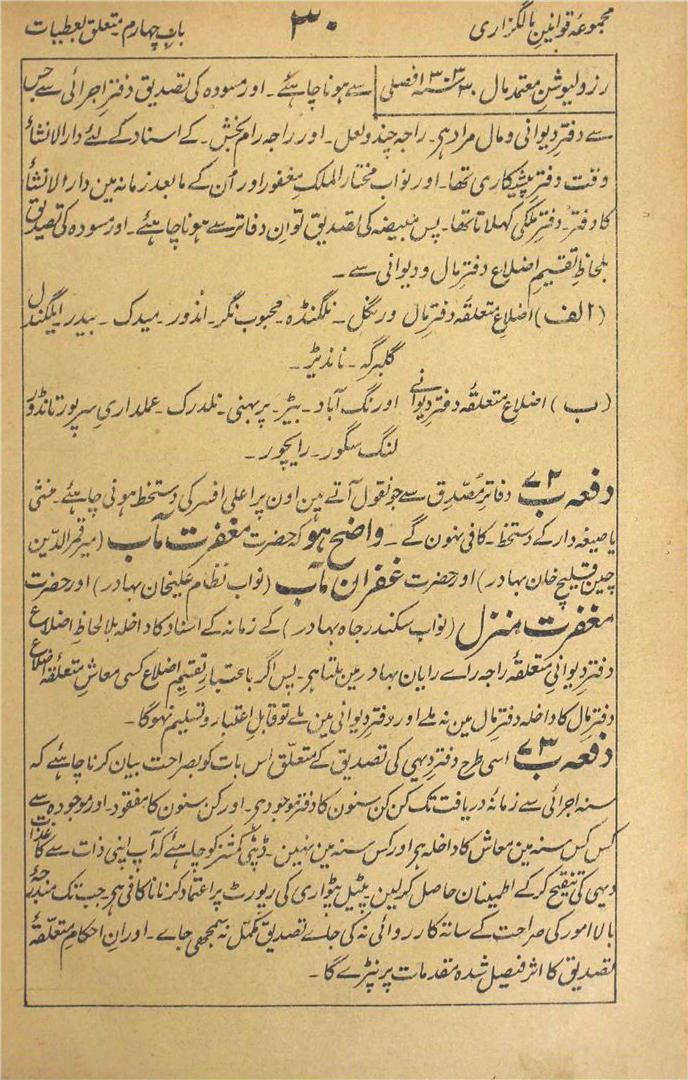 مجموعہ قوانین مالگزاری ۳۰ باب چہارم متعلق بعطیات
رزولیوشن معتمد مال سے ہونا چاہئے ۔ اور مسودہ کی تصدیق دفتر اجرائی سے جس
سے دفتر دیوانی و مال مراد ہر ۔ راجہ چندولعل ۔ اور راجہ رام بخش ۔ کے اسناد کے لئے دارالانشاء
وقت دفتر پیشکاری تھا ۔ اور نواب مختار الملک مغفور اور اُن کے مابعد زمانہ مین دارالانشاء
کا دفتر ۔ دفتر ملکی کہلاتا تھا ۔ پس مبیضہ کی تصدیق تو ان دفاتر سے ہونا چاہئے ۔ اور مسودہ کی تصدیق
بلحاظ تقسیم اضلاع دفتر مال و دیوانی سے ۔
(الف) اضلاع متعلقہ دفتر مال ورنگل ۔ نلگنڈہ ۔ محبوب نگر ۔ اندور ۔ میدک ۔ بیدر ۔ ایلگندل
گلبرگہ ۔ نانڈیڑ ۔
(ب) اضلاع متعلقہ دفتر دیوانی اورنگ آباد ۔ بیڑ ۔ پربھنی ۔ نلدرک ۔ عملداری سرپور تانڈور
لنگ سگور ۔ رایچور ۔
دفعہ ۲ ب دفاتر مُصدِق سے جو نقول آتے ہین اون پر اعلی افسر کی دستخط ہونی چاہئے ۔ منشی
یا صیغہ دار کے دستخط کافی نہون گے ۔ واضح ہو کہ حضرت مغفرت مآب (میر قمر الدین
چین قلیچ خان بہادر) اور حضرت غفران مآب (نواب نظام علیخان بہادر) اور حضرت
مغفرت منزل (نواب سکندر جاہ بہادر) کے زمانہ کے اسناد کا داخلہ بلا لحاظ اضلاع
دفتر دیوانی متعلقہ راجہ راے رایان بہادر مین ملتا ہر ۔ پس اگر باعتبار تقسیم اضلاع کسی معاش متعلقہ اضلاع
دفتر مال کا داخلہ دفتر مال مین نہ ملے اور دفتر دیوانی مین ملے تو قابل اعتبار و تسلیم نہوگا ۔
دفعہ ۳ ب اسی طرح دفتر دیہی کی تصدیق کے متعلق اس بات کو بصراحت بیان کرنا چاہئے کہ
سنہ اجرائی سے زمانہ دریافت تک کن کن سنون کا دفتر موجود ہر ۔ اور کن سنون کا مفقود ۔ اور موجودہ سے
کس کس سنہ مین معاش کا داخلہ ہر اور کس سنہ مین نہین ۔ ڈپٹی کمشنر کو چاہئے کہ آپ اپنی ذات سے کاغذات
دیہی کی تنقیح کر کے اطمینان حاصل کر لین ۔ پٹیل پٹواری کی رپورٹ پر اعتماد کرنا ناکافی ہر ۔ جب تک مندرجۂ
بالا امور کی صراحت کے ساتہ کارروائی نہ کی جاے تصدیق مکمل نہ سمجھی جاے ۔ اور ان احکام متعلقۂ
تصدیق کا اثر فیصل شدہ مقدمات پر نپڑے گا ۔